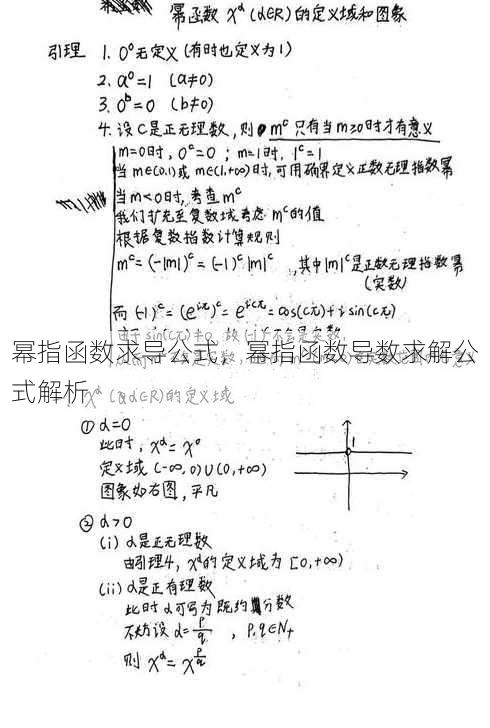 幂函数 x^α (α∈R)的定义域和图象
引理 1. 0⁰无定义(有时也定义为1)
2. a⁰=1 (a≠0)
3. 0^b=0 (b≠0)
4. 设C是正无理数,则 m^c 只有当m≥0时才有意义
m=0时, 0^c=0 ; m=1时, 1^c=1
当m∈(0,1)或m∈(1,+∞)时,可用确界定义正数无理指数幂
当m<0时,考查m^c
我们扩充至复数域考虑 m^c的值
根据复数指数计算规则
m^c=(-|m|)^c=(-1)^c|m|^c ,其中|m|^c是正数无理指数幂
(实数)
而(-1)^c=(e^{iπ})^c=e^{icπ}=cos(cπ)+i sin(cπ)
由于sin(cπ)≠0, 故(-1)^c不会是实数
幂指函数求导公式,幂指函数导数求解公
式解析
x^α (α∈R)的定义域
① α=0
此时, x^α=x⁰
定义域 (-∞,0)∪(0,+∞)
图象如右图,平凡
1
② α>0
(i) α是正无理数
由引理4, x^α的定义域为 [0,+∞)
(ii) α是正有理数
此时α可写为既约分数
不妨设 α=p/q , p,q∈N₊
则 x^α=x^{p/q}